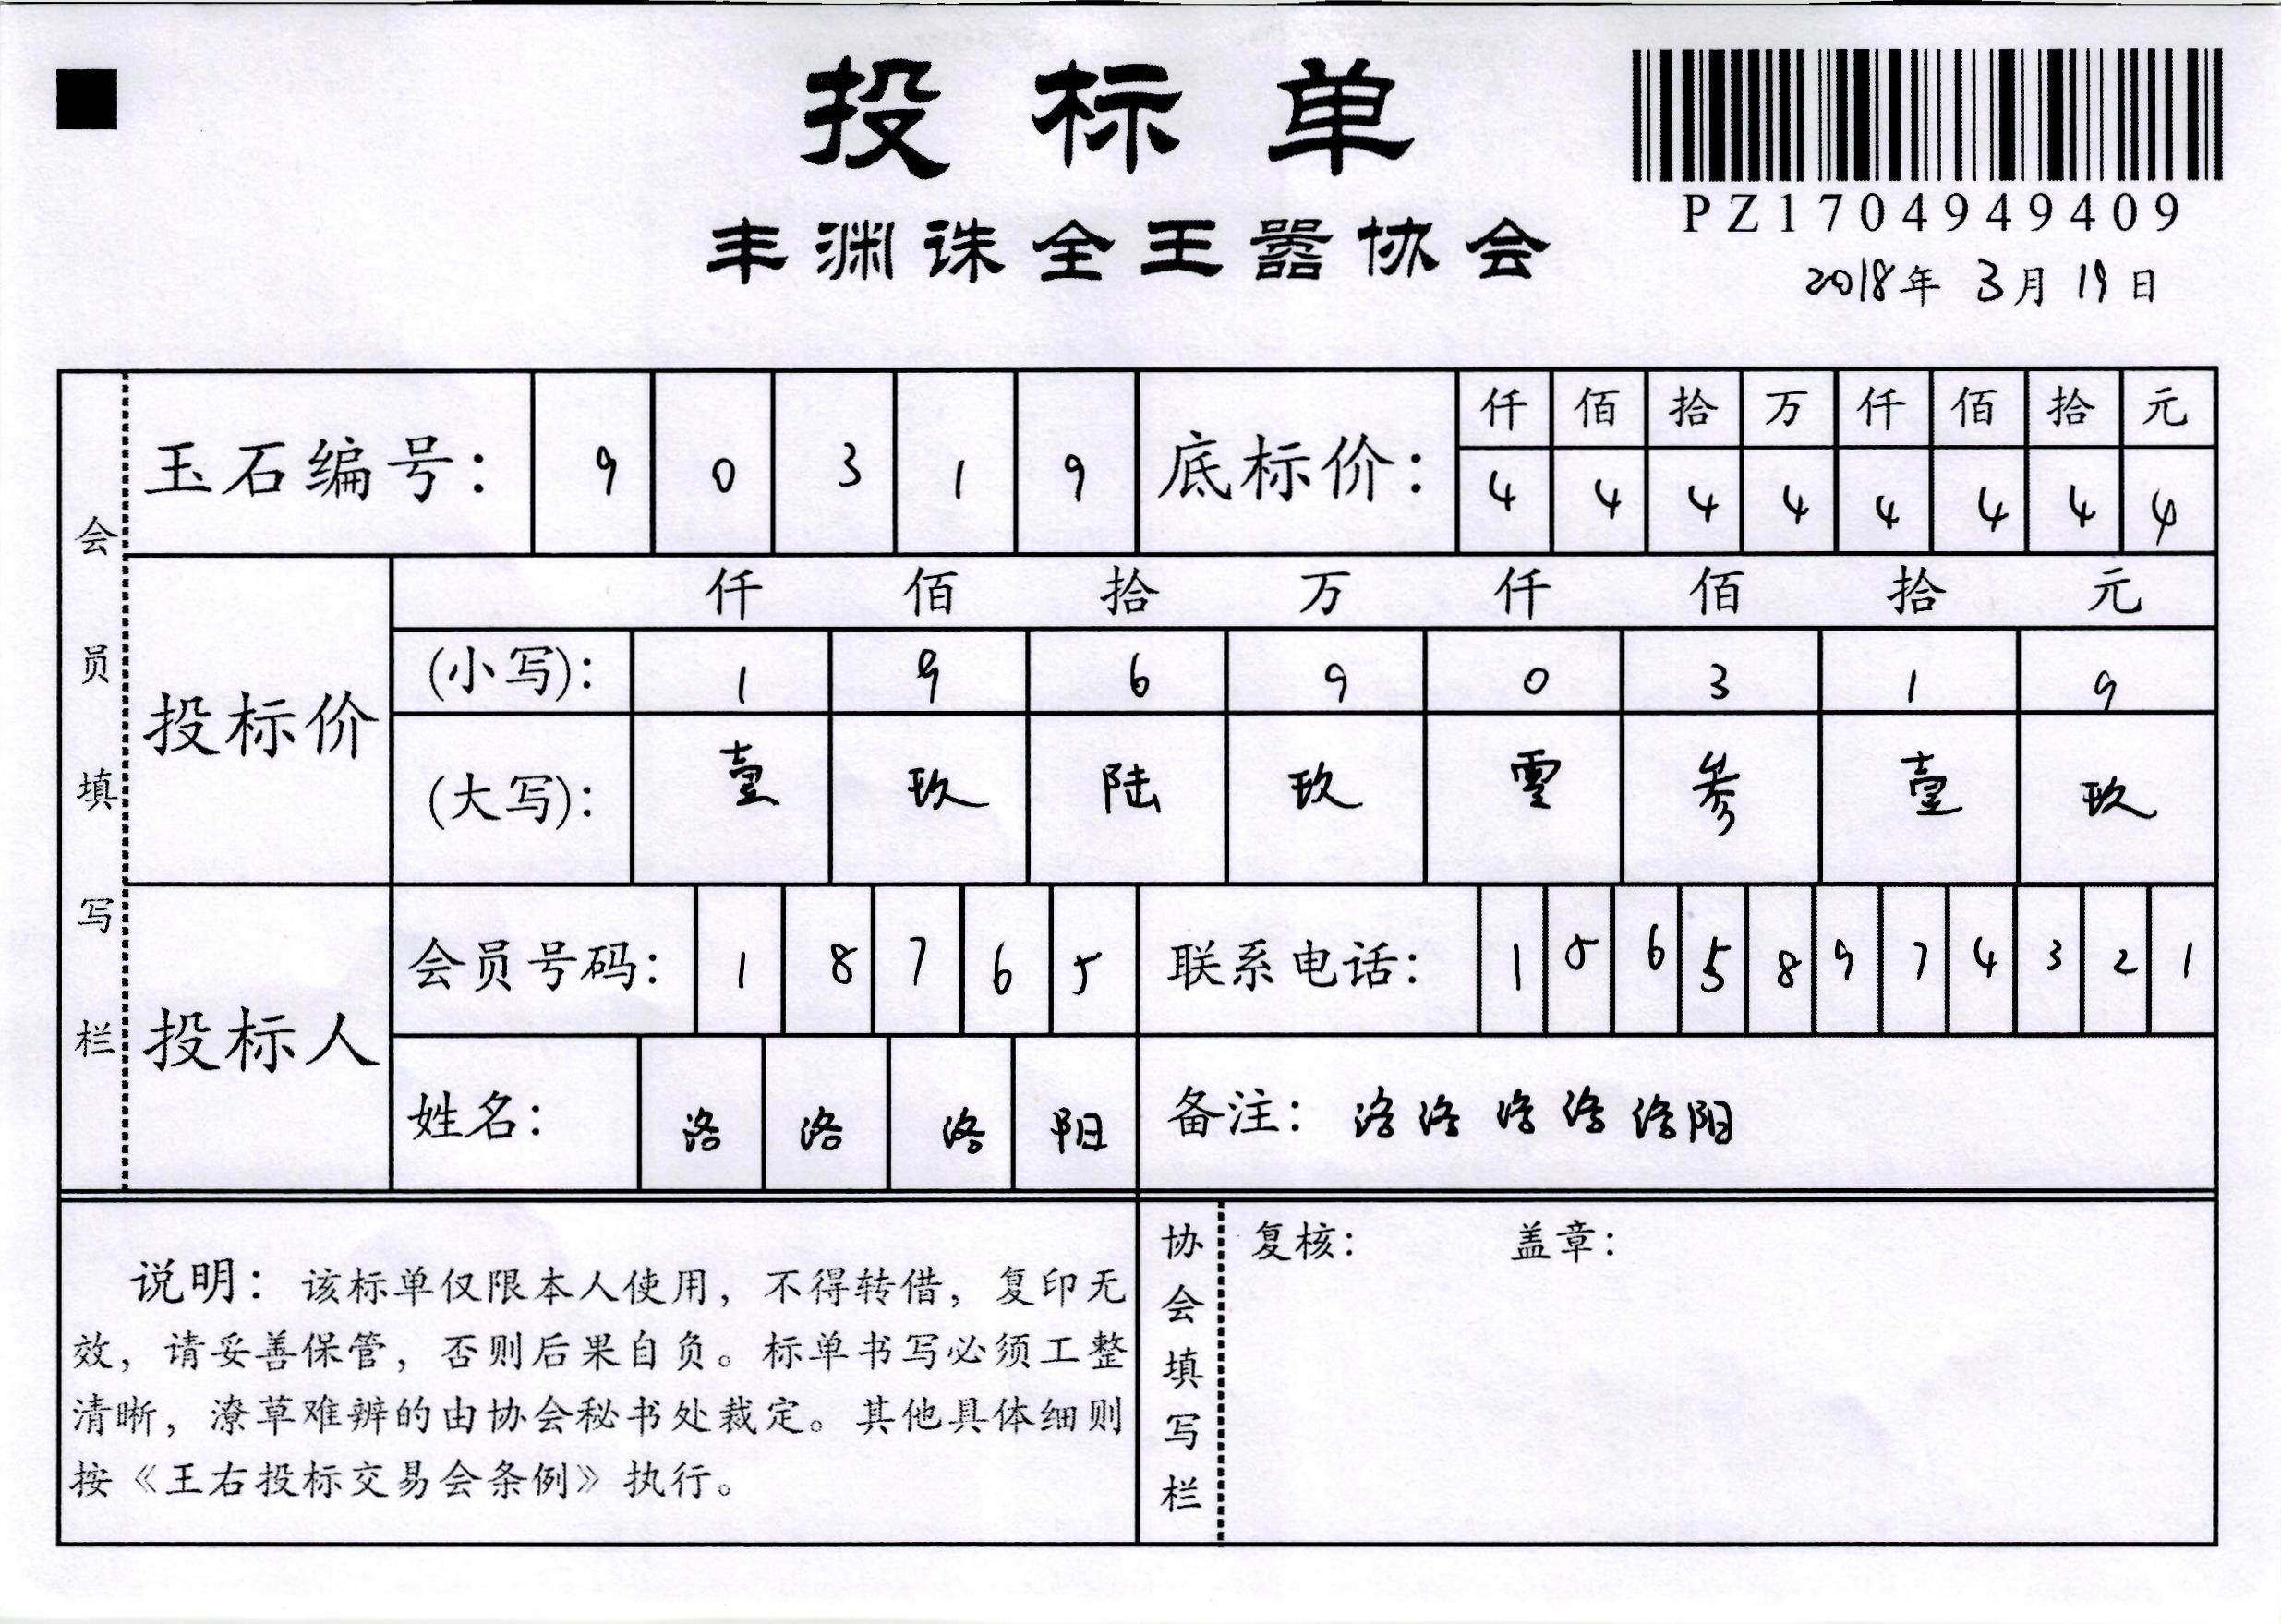 投标单
PZ1704949409
丰渊诛全王器协会
2018年 3月 19日
会员填写栏
玉石编号： 9 0 3 1 9
底标价： 仟 佰 拾 万 仟 佰 拾 元
4 4 4 4 4 4 4 4
投标价
仟 佰 拾 万 仟 佰 拾 元
(小写)： 1 9 6 9 0 3 1 9
(大写)： 壹 玖 陆 玖 零 叁 壹 玖
投标人
会员号码： 1 8 7 6 5
联系电话： 1 5 6 5 8 9 7 4 3 2 1
姓名： 洛 洛 洛 阳
备注： 洛洛洛洛洛阳
说明：该标单仅限本人使用，不得转借，复印无
效，请妥善保管，否则后果自负。标单书写必须工整
清晰，潦草难辨的由协会秘书处裁定。其他具体细则
按《王右投标交易会条例》执行。
协会填写栏
复核： 盖章：